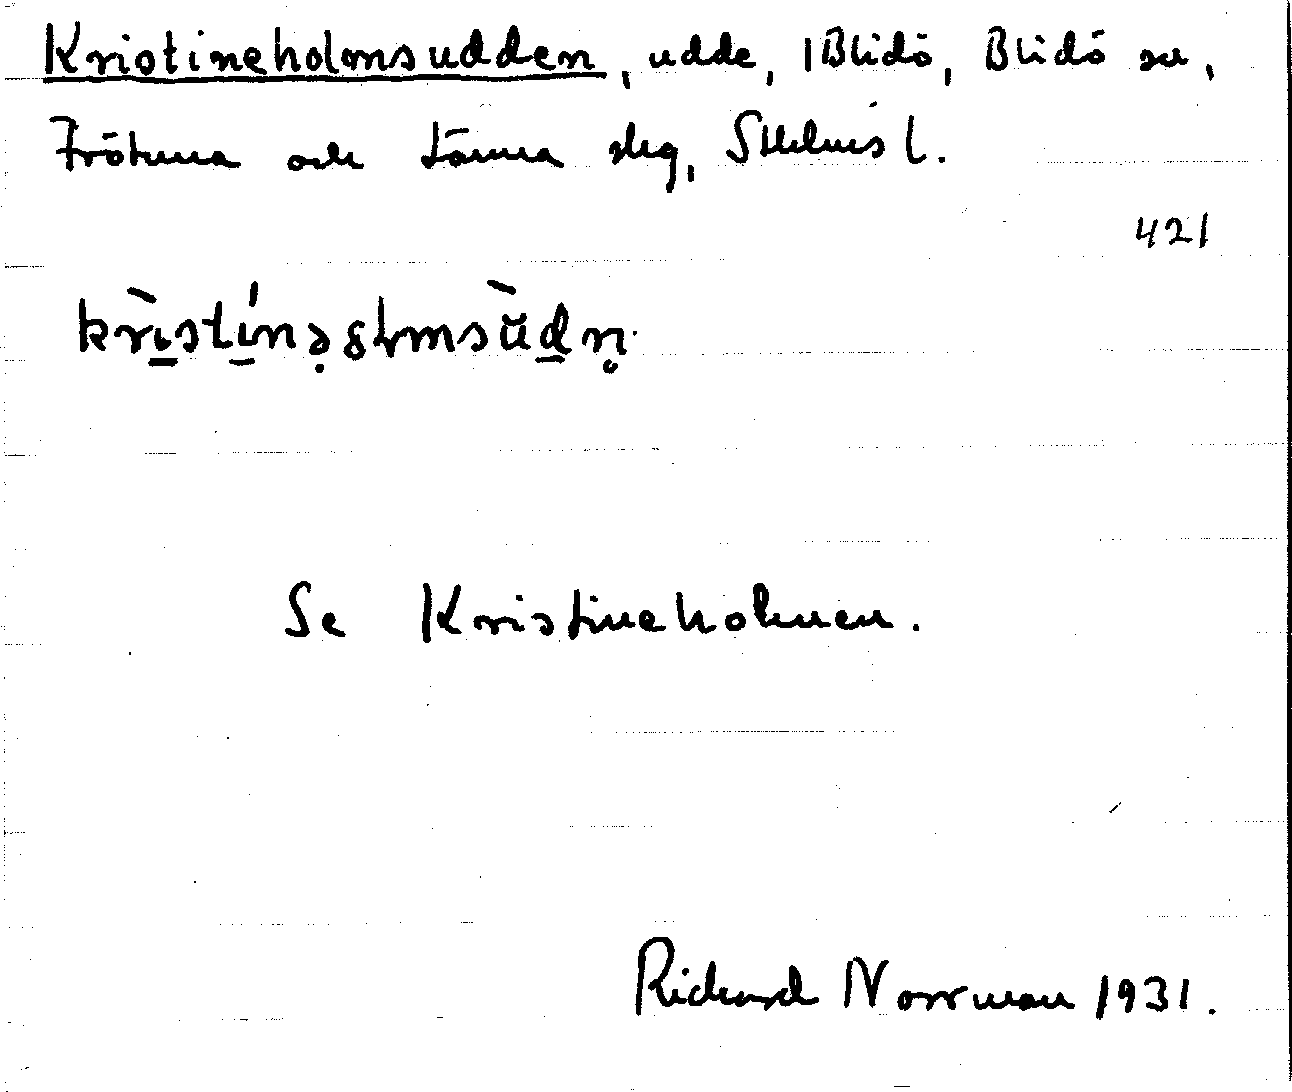 Kristineholmsudden, udde, 1 Blidö, Blidö sn,
Frötuna och Länna slg, Sthlms l.
421
Se Kristineholmen.
Richard Norrman 1931.